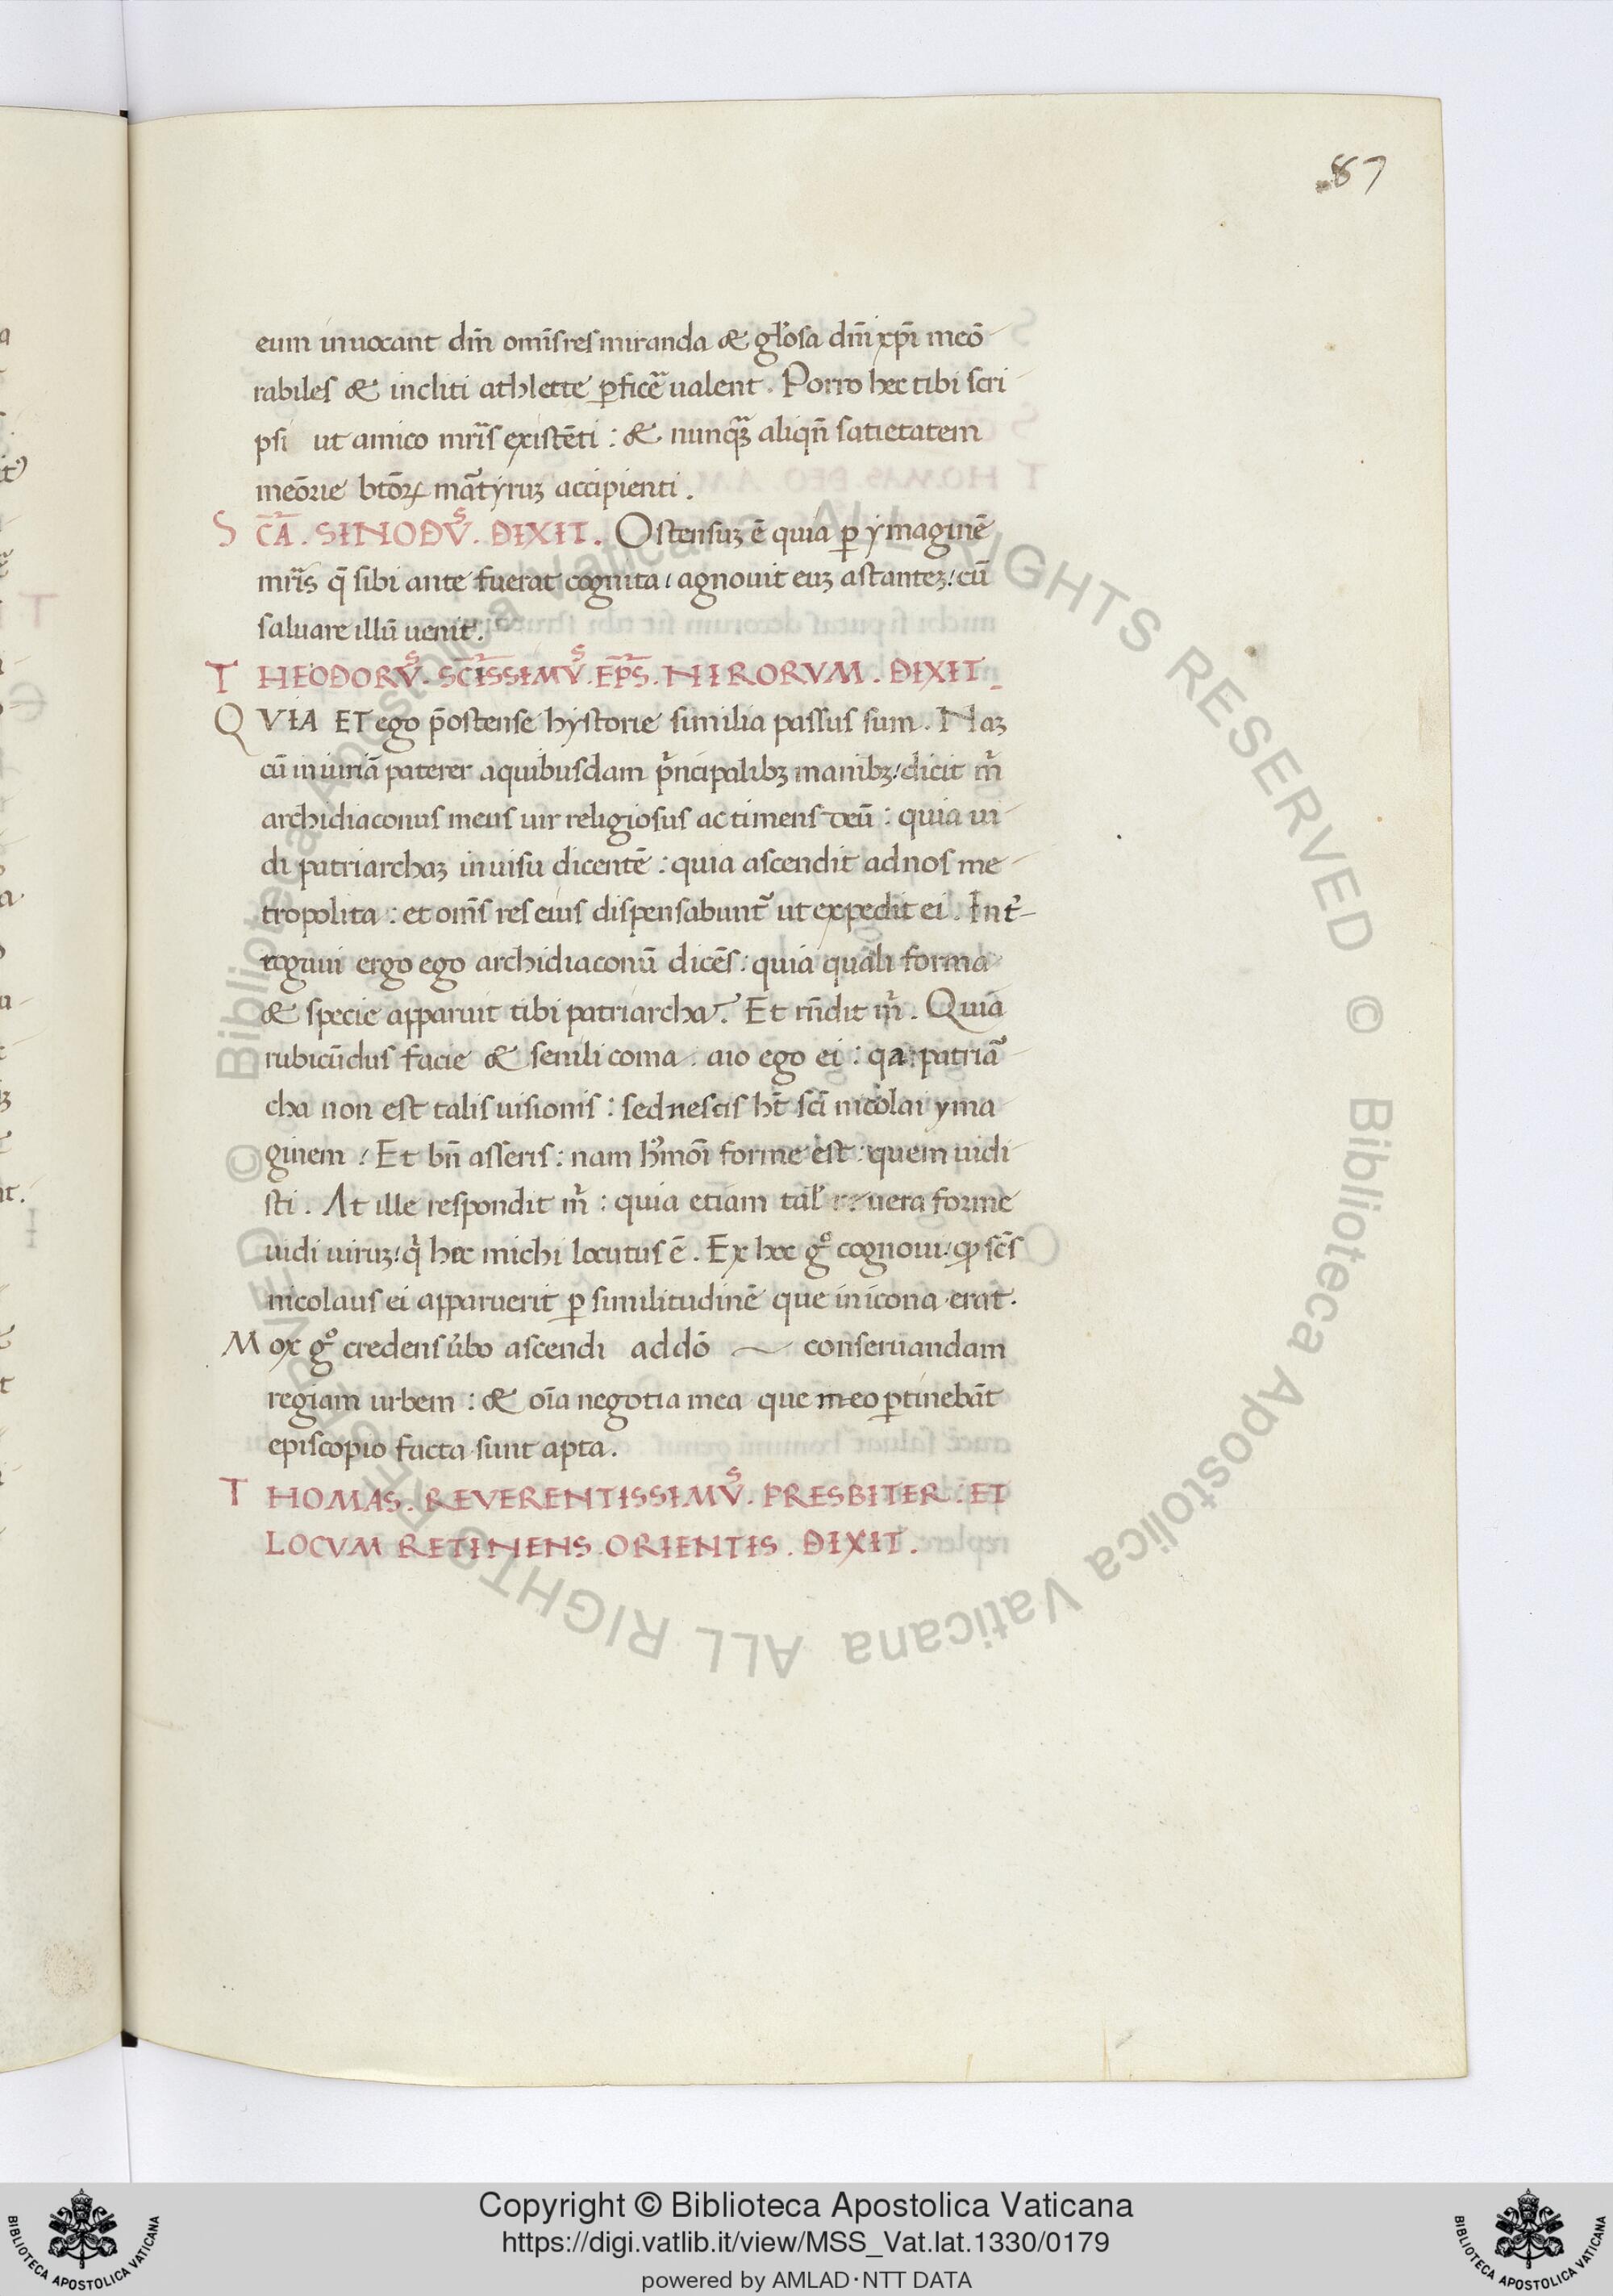 87
eum inuocant dm̄ omīs res miranda & glōsa dm̄i xp̄i meō
rabiles & incliti athlette ꝑficē ualent. Porro hec tibi scri
psi ut amico mr̄is existēti: & nunqꝫ aliqn̄ satietatem
meōrie btōꝝ mātyruꝫ accipienti.
SCĀ. SINODVS. DIXIT. Ostensuꝫ ē quia ꝑ ymaginē
mr̄is q̄ sibi ante fuerat cognita/ agnouit euꝫ astanteꝫ/ cū
saluare illū uenit.
THEODORVS. SC̄ISSIMVS. EP̄S. NIRORVM. DIXIT.
QVIA ET ego p̄ostense hystorie similia passus sum. Naꝫ
cū iniuriā paterer aquibusdam pͥncipalibꝫ manibꝫ/ dicit m̄
archidiaconus meus uir religiosus ac timens deū: quia ui
di patriarchaꝫ in uisu dicentē: quia ascendit ad nos me
tropolita: et om̄s res eius dispensabunt᷑ ut expedit ei. Int̉
rogaui ergo ego archidiaconū dicēs: quia quali forma
& specie apparuit tibi patriarcha? Et rn̄dit m̄. Quia
rubicūdus facie & senili coma. aio ego ei: qa: patriā
cha non est talis uisionis: sed nescis ht̄ sc̄i nicolai yma
ginem? Et bn̄ asseris: nam hͥmōi forme est: quem uidi
sti. At ille respondit m̄: quia etiam tal̄ reuera forme
uidi uiruꝫ/ qͥ hec michi locutus ē. Ex hoc gͦ cognoui/ ꝙ sc̄s
nicolaus ei apparuerit ꝑ similitudinē que in icona erat.
Mox gͦ credens ūbo ascendi ad dō conseruandam
regiam urbem: & oīa negotia mea que meo ꝑtinebāt
episcopio facta sunt apta.
THOMAS. REVERENTISSIMVS. PRESBITER. ET
LOCVM RETINENS. ORIENTIS. DIXIT.
© Biblioteca Apostolica Vaticana ALL RIGHTS RESERVED © Biblioteca Apostolica Vaticana ALL RIGHTS RESERVED
BIBLIOTECA APOSTOLICA VATICANA
Copyright © Biblioteca Apostolica Vaticana
https://digi.vatlib.it/view/MSS_Vat.lat.1330/0179
powered by AMLAD·NTT DATA
BIBLIOTECA APOSTOLICA VATICANA